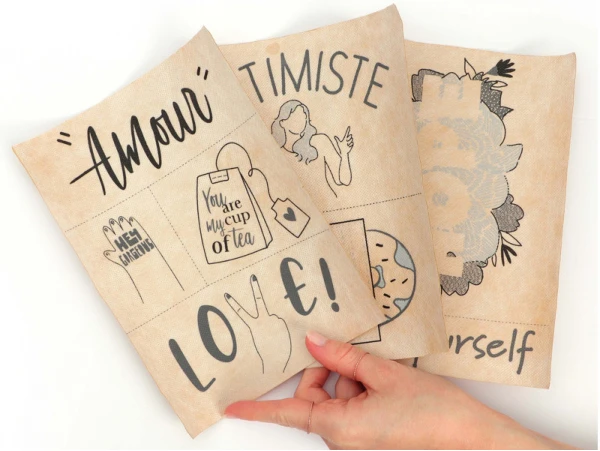 "Amour"
TIMISTE
You
are
my cup
of tea
HEY
GORGEOUS
LOVE!
urself